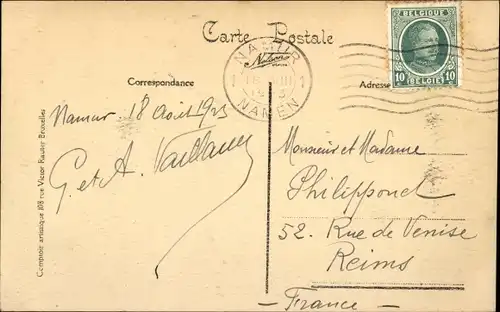 Carte Postale
BELGIQUE
10 BELGIE 10
NAMUR
Nels
NAMEN
Correspondance
Adresse
Namur 18 Août 1923
G. et A. Vaillant
Monsieur et Madame
Philipponet
52. Rue de Venise
Reims
– France –
Comptoir artistique 108 rue Victor Rauter Bruxelles